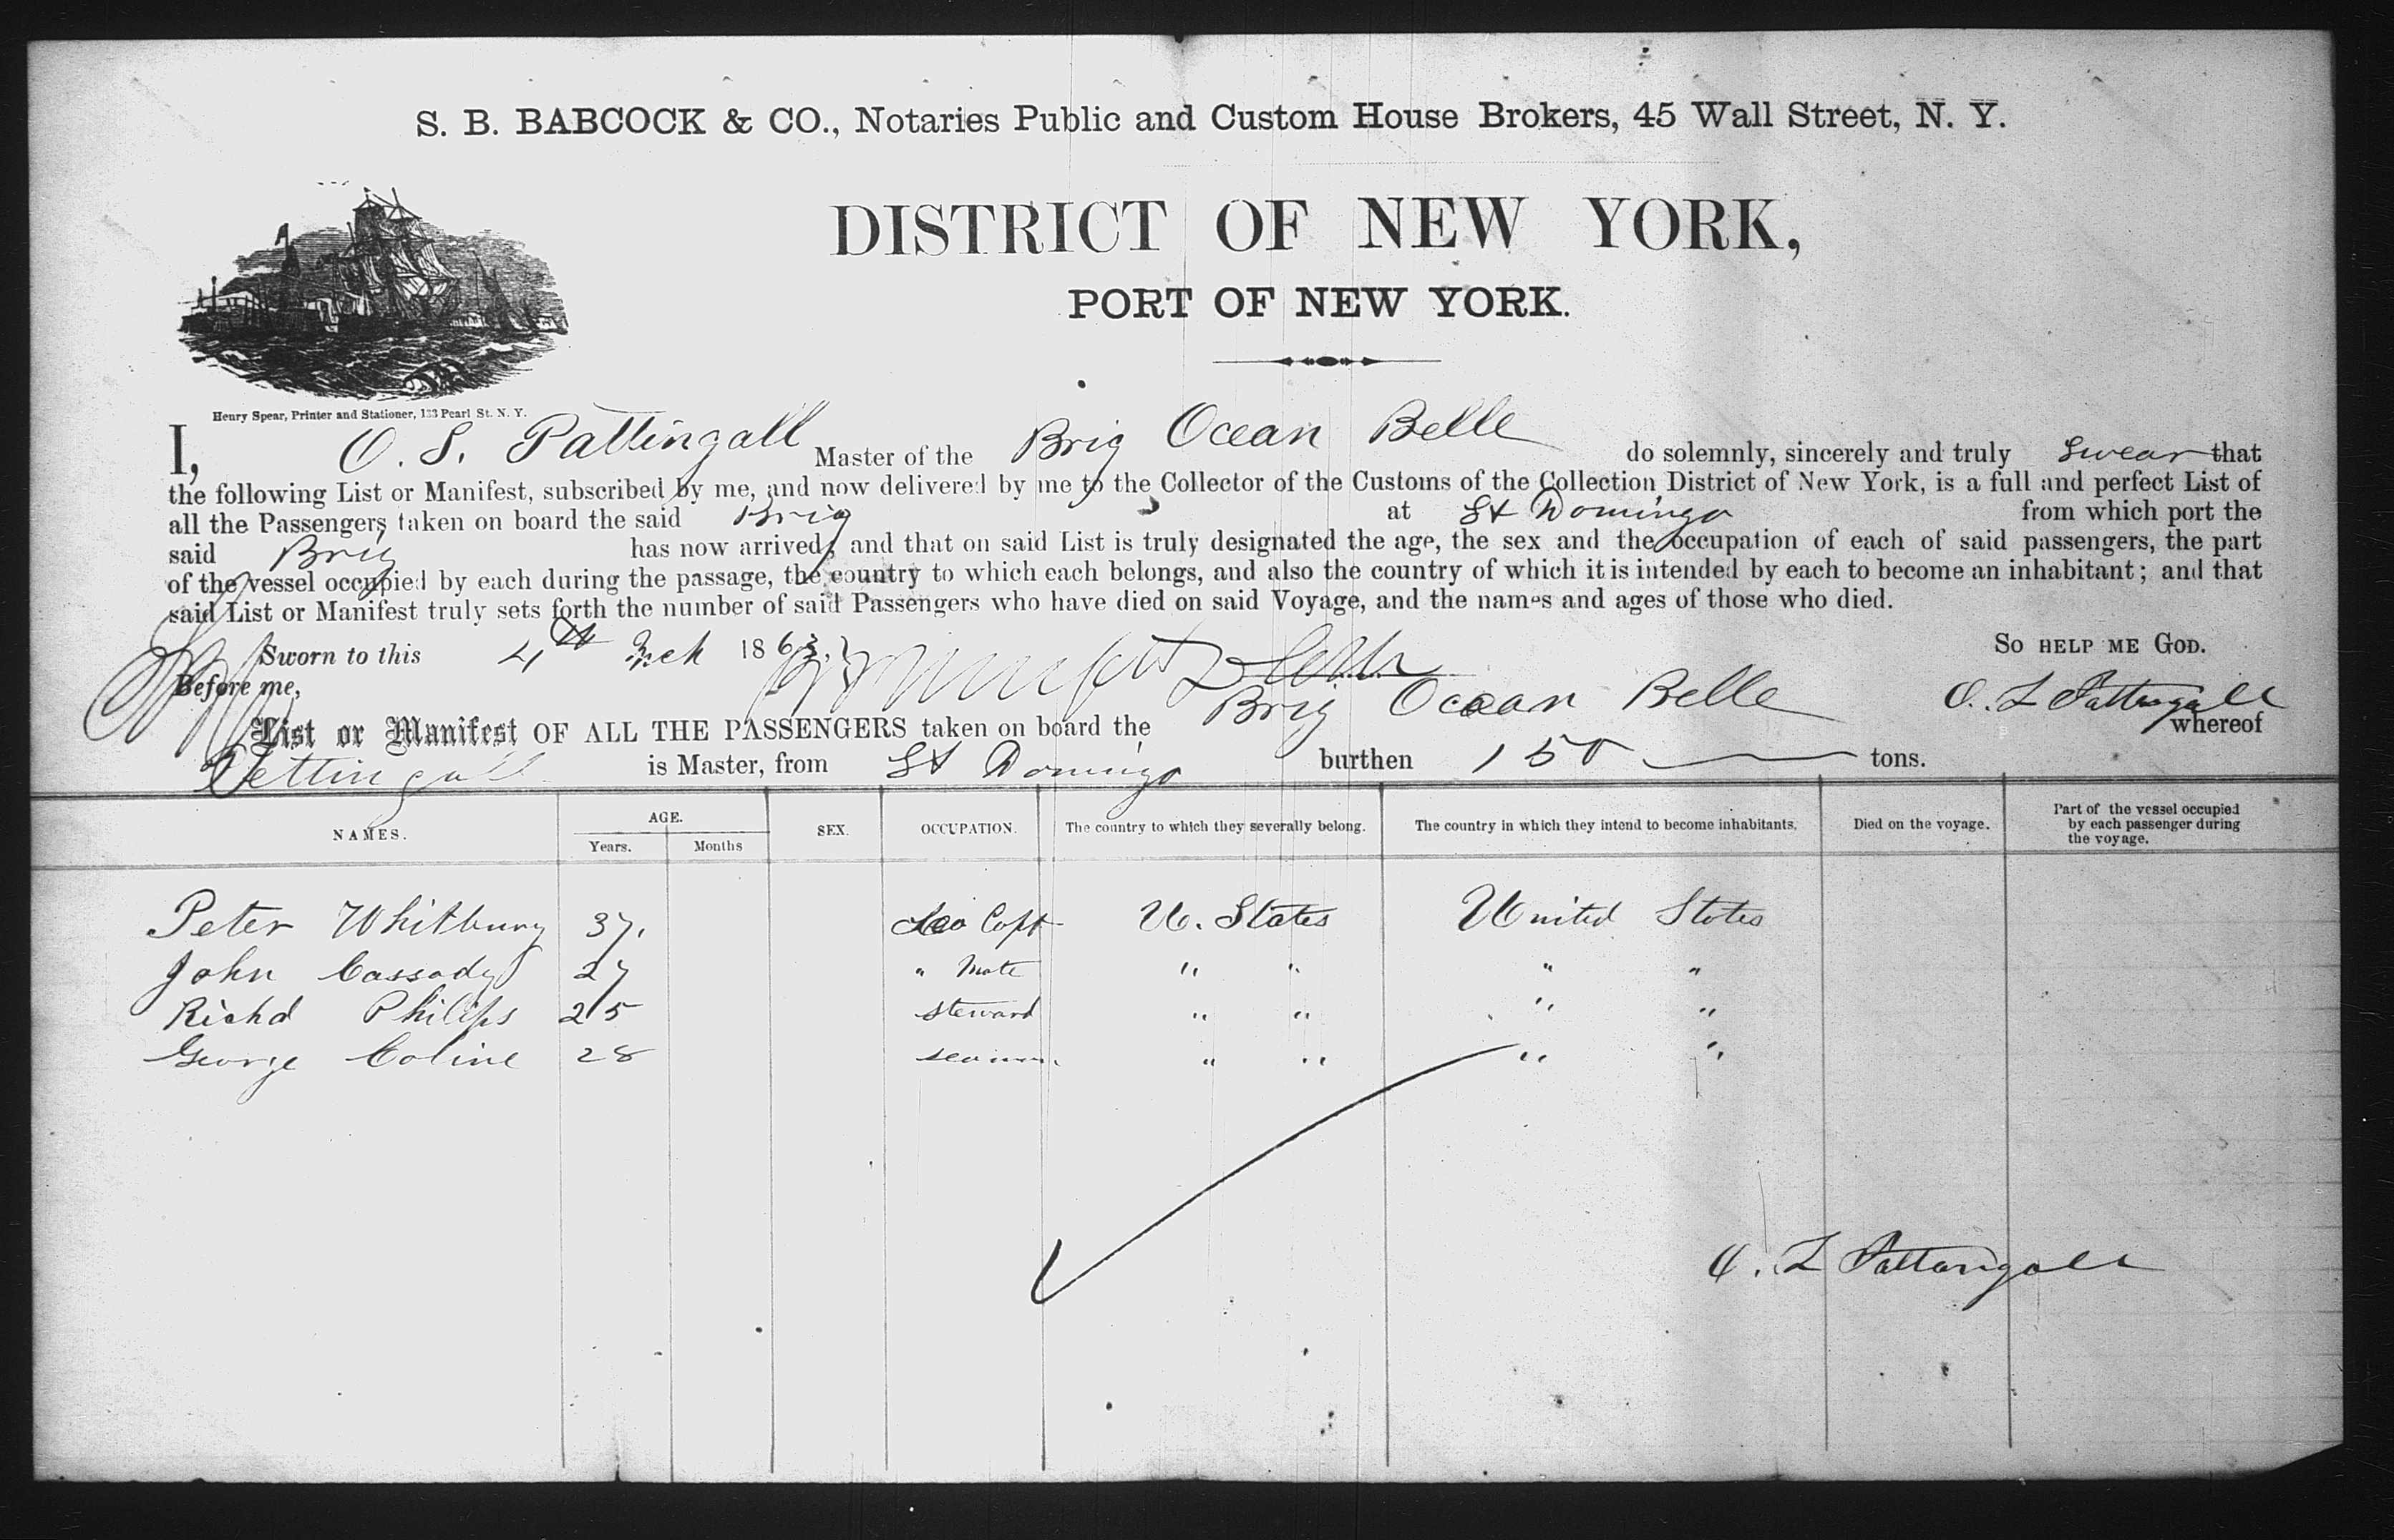 S. B. BABCOCK & CO., Notaries Public and Custom House Brokers, 45 Wall Street, N. Y.
DISTRICT OF NEW YORK,
PORT OF NEW YORK.
Henry Spear, Printer and Stationer, 133 Pearl St. N. Y.
I, O. S. Pattingall Master of the Brig Ocean Belle do solemnly, sincerely and truly swear that
the following List or Manifest, subscribed by me, and now delivered by me to the Collector of the Customs of the Collection District of New York, is a full and perfect List of
all the Passengers taken on board the said Brig at St Domingo from which port the
said Brig has now arrived, and that on said List is truly designated the age, the sex and the occupation of each of said passengers, the part
of the vessel occupied by each during the passage, the country to which each belongs, and also the country of which it is intended by each to become an inhabitant; and that
said List or Manifest truly sets forth the number of said Passengers who have died on said Voyage, and the names and ages of those who died.
Sworn to this 4th Mch 1863. SO HELP ME GOD.
Before me, O. L Pattangall
List or Manifest OF ALL THE PASSENGERS taken on board the Brig Ocean Belle whereof
Pettingall is Master, from St Domingo burthen 150 tons.
NAMES. AGE. Years. Months SEX. OCCUPATION. The country to which they severally belong. The country in which they intend to become inhabitants. Died on the voyage. Part of the vessel occupied by each passenger during the voyage.
Peter Whitbury 37. Sea Capt U. States United States
John Cassady 27 " Mate " " " "
Richd Philips 25 steward " " " "
George Coline 28 seaman " " " "
O. L Pattangall